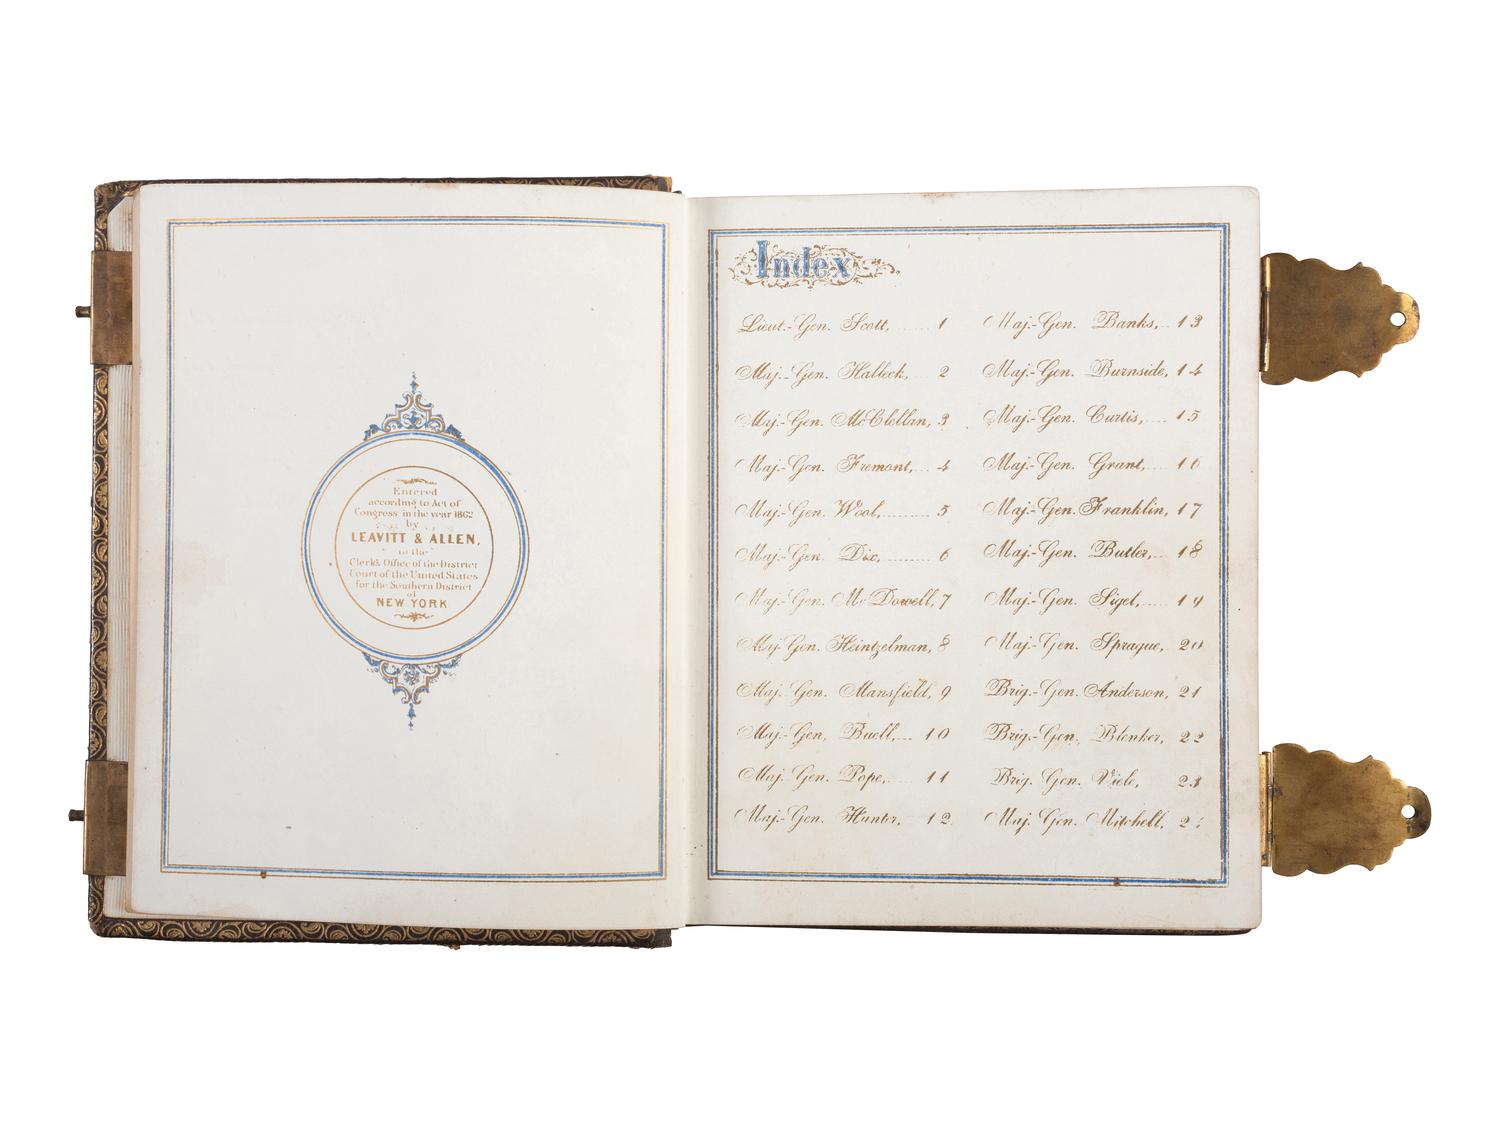 Entered
according to Act of
Congress in the year 1862
by
LEAVITT & ALLEN,
in the
Clerks Office of the District
Court of the United States
for the Southern District
of
NEW YORK
Index
Lieut.-Gen. Scott, 1
Maj.-Gen. Halleck, 2
Maj.-Gen. McClellan, 3
Maj.-Gen. Fremont, 4
Maj.-Gen. Wool, 5
Maj.-Gen. Dix, 6
Maj.-Gen. McDowell, 7
Maj-Gen. Heintzelman, 8
Maj.-Gen. Mansfield, 9
Maj.-Gen. Buell, 10
Maj. Gen. Pope, 11
Maj.-Gen. Hunter, 12
Maj.-Gen. Banks, 13
Maj.-Gen. Burnside, 14
Maj.-Gen. Curtis, 15
Maj.-Gen. Grant, 16
Maj.-Gen. Franklin, 17
Maj.-Gen. Butler, 18
Maj.-Gen. Sigel, 19
Maj.-Gen. Sprague, 20
Brig.-Gen. Anderson, 21
Brig.-Gen. Blenker, 22
Brig. Gen. Viele, 23
Maj. Gen. Mitchell,